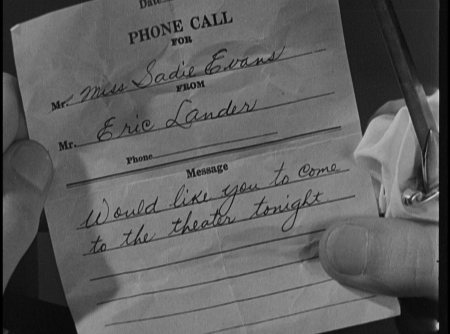 Date
PHONE CALL
FOR
Mr. Miss Sadie Evans
FROM
Mr. Eric Lander
Phone
Message
Would like you to come
to the theater tonight.